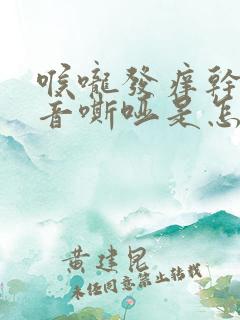 喉嚨發癢幹
音嘶啞是怎
黄建昆
未经同意禁止转载